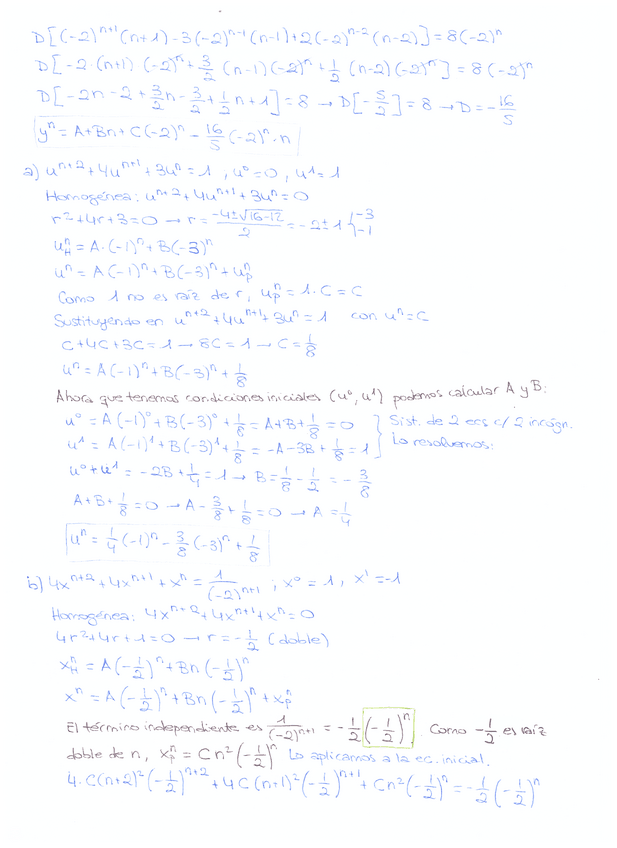 D[(-2)ⁿ⁺¹(n+1)-3(-2)ⁿ⁻¹(n-1)+2(-2)ⁿ⁻²(n-2)]=8(-2)ⁿ
D[-2·(n+1)(-2)ⁿ+3/2(n-1)(-2)ⁿ+1/2(n-2)(-2)ⁿ]=8(-2)ⁿ
D[-2n-2+3/2n-3/2+1/2n+1]=8→D[-5/2]=8→D=-16/5
yⁿ=A+Bn+C(-2)ⁿ-16/5(-2)ⁿ·n
a) uⁿ⁺²+4uⁿ⁺¹+3uⁿ=1, u⁰=0, u¹=1
Homogénea: uⁿ⁺²+4uⁿ⁺¹+3uⁿ=0
r²+4r+3=0→r=(-4±√16-12)/2=-2±1 -3 -1
u_Hⁿ=A·(-1)ⁿ+B(-3)ⁿ
uⁿ=A(-1)ⁿ+B(-3)ⁿ+u_pⁿ
Como 1 no es raíz de r, u_pⁿ=1·C=C
Sustituyendo en uⁿ⁺²+4uⁿ⁺¹+3uⁿ=1 con uⁿ=C
C+4C+3C=1→8C=1→C=1/8
uⁿ=A(-1)ⁿ+B(-3)ⁿ+1/8
Ahora que tenemos condiciones iniciales (u⁰,u¹) podemos calcular A y B:
u⁰=A(-1)⁰+B(-3)⁰+1/8=A+B+1/8=0 } Sist. de 2 ecs c/ 2 incógn.
u¹=A(-1)¹+B(-3)¹+1/8=-A-3B+1/8=1 } Lo resolvemos:
u⁰+u¹=-2B+1/4=1→B=1/8-1/2=-3/8
A+B+1/8=0→A-3/8+1/8=0→A=1/4
uⁿ=1/4(-1)ⁿ-3/8(-3)ⁿ+1/8
b) 4xⁿ⁺²+4xⁿ⁺¹+xⁿ=1/(-2)ⁿ⁺¹; x⁰=1, x¹=-1
Homogénea: 4xⁿ⁺²+4xⁿ⁺¹+xⁿ=0
4r²+4r+1=0→r=-1/2 (doble)
x_Hⁿ=A(-1/2)ⁿ+Bn(-1/2)ⁿ
xⁿ=A(-1/2)ⁿ+Bn(-1/2)ⁿ+x_pⁿ
El término independiente es 1/(-2)ⁿ⁺¹=-1/2(-1/2)ⁿ. Como -1/2 es raíz
doble de n, x_pⁿ=Cn²(-1/2)ⁿ Lo aplicamos a la ec. inicial.
4·C(n+2)²(-1/2)ⁿ⁺²+4C(n+1)²(-1/2)ⁿ⁺¹+Cn²(-1/2)ⁿ=-1/2(-1/2)ⁿ